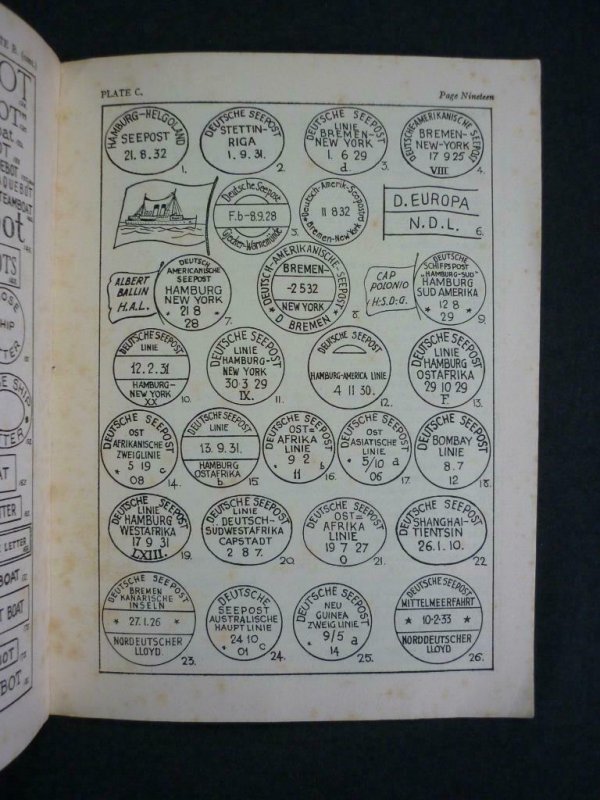 TE B. (cont.)
PLATE C.
Page Nineteen
HAMBURG-HELGOLAND
SEEPOST
21.8.32
1.
DEUTSCHE SEEPOST
STETTIN-
RIGA
1.9.31.
2.
DEUTSCHE SEEPOST
LINIE
BREMEN-
NEW-YORK
1. 6 29
d.
3.
DEUTSCH-AMERIKANISCHE SEEPOST
BREMEN-
NEW-YORK
17 9 25
VIII
4.
Deutsche Seepost
F.b-8.9.28
Gjedser-Warnemünde
5.
Deutsch-Amerik-Seepost
11 8 32
Bremen-New York
D. EUROPA
N.D.L.
6.
ALBERT
BALLIN
H.A.L.
DEUTSCH
AMERICANISCHE
SEEPOST
HAMBURG
NEW YORK
* 21 8 *
28
7.
DEUTSCH-AMERIKANISCHE-SEEPOST
BREMEN-
-2 5 32
NEW YORK
* D. BREMEN *
8.
CAP
POLONIO
H.S.D.G.
DEUTSCHE
SCHIFFSPOST
"HAMBURG-SÜD"
HAMBURG
SÜD AMERIKA
* 12 8 *
29
9.
DEUTSCHE SEEPOST
LINIE
12.2.31
HAMBURG-
NEW YORK
XX
10.
DEUTSCHE SEEPOST
LINIE
HAMBURG-
NEW YORK
30 3 29
IX.
11.
DEUTSCHE SEEPOST
HAMBURG-AMERICA LINIE
4 11 30.
12.
DEUTSCHE SEEPOST
LINIE
HAMBURG
OSTAFRIKA
29 10 29
F
13.
DEUTSCHE SEEPOST
OST
AFRIKANISCHE
ZWEIGLINIE
* 5 19 c
08
14.
DEUTSCHE SEEPOST
LINIE
13.9.31.
HAMBURG
OSTAFRIKA
b
15.
DEUTSCHE SEEPOST
OST=
AFRIKA
LINIE
* 9 2 b
11
16.
DEUTSCHE SEEPOST
OST
ASIATISCHE
LINIE
* 5/10 a
06
17.
DEUTSCHE SEEPOST
BOMBAY
LINIE
8.7
12
18.
DEUTSCHE SEEPOST
LINIE
HAMBURG
WESTAFRIKA
17 9 31
LXIII.
19.
DEUTSCHE SEEPOST
LINIE
DEUTSCH-
SUDWESTAFRIKA
CAPSTADT
2 8 7.
20.
DEUTSCHE SEEPOST
OST=
AFRIKA
LINIE
19 7 27
O
21.
DEUTSCHE SEEPOST
SHANGHAI-
TIENTSIN
26.1.10.
22.
DEUTSCHE SEEPOST
BREMEN
KANARISCHE
INSELN
* 27.1.26 *
NORDDEUTSCHER
LLOYD.
23.
DEUTSCHE
SEEPOST
AUSTRALISCHE
HAUPT LINIE
24 10
* 01 c
24.
DEUTSCHE SEEPOST
NEU
GUINEA
ZWEIGLINIE
* 9/5 a
14
25.
DEUTSCHE SEEPOST
MITTELMEERFAHRT
* 10-2-33 *
NORDDEUTSCHER
LLOYD
26.